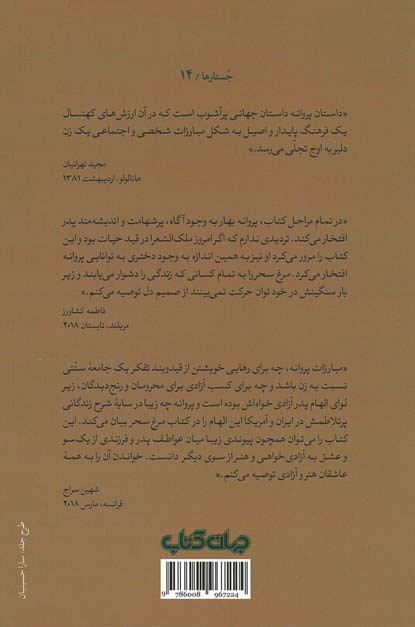 جُستارها / ۱۴
«داستان پروانه داستان جهانی پرآشوب است که در آن ارزش‌های کهنسال
یک فرهنگ پایدار و اصیل به شکل مبارزات شخصی و اجتماعی یک زن
دلیر به اوج تجلّی می‌رسد.»
مجید تهرانیان
هانالولو، اردیبهشت ۱۳۸۱
«در تمام مراحل کتاب، پروانه بهار به وجود آگاه، پرشهامت و اندیشه‌مند پدر
افتخار می‌کند. تردیدی ندارم که اگر امروز ملک‌الشعرا در قید حیات بود و این
کتاب را مرور می‌کرد او نیز به همین اندازه به وجود دختری به توانایی پروانه
افتخار می‌کرد. مرغ سحر را به تمام کسانی که زندگی را دشوار می‌یابند و زیر
بار سنگینش در خود توان حرکت نمی‌بینند از صمیم دل توصیه می‌کنم.»
فاطمه کشاورز
مریلند، تابستان ۲۰۱۸
«مبارزات پروانه، چه برای رهایی خویشتن از قیدوبند تفکر یک جامعهٔ سنّتی
نسبت به زن باشد و چه برای کسب آزادی برای محرومان و رنج‌دیدگان، زیر
لوای الهام پدر آزادی خواه‌اش بوده است و پروانه چه زیبا در سایهٔ شرح زندگانی
پرتلاطمش در ایران و آمریکا این الهام را در کتاب مرغ سحر بیان می‌کند. این
کتاب را می‌توان همچون پیوندی زیبا میان عواطف پدر و فرزندی از یک سو
و عشق به آزادی‌خواهی و هنر از سوی دیگر دانست. خواندن آن را به همهٔ
عاشقان هنر و آزادی توصیه می‌کنم.»
شهین سراج
فرانسه، مارس ۲۰۱۸
طرح جلد: سارا حسینیان
جهان کتاب
9 786008 967224